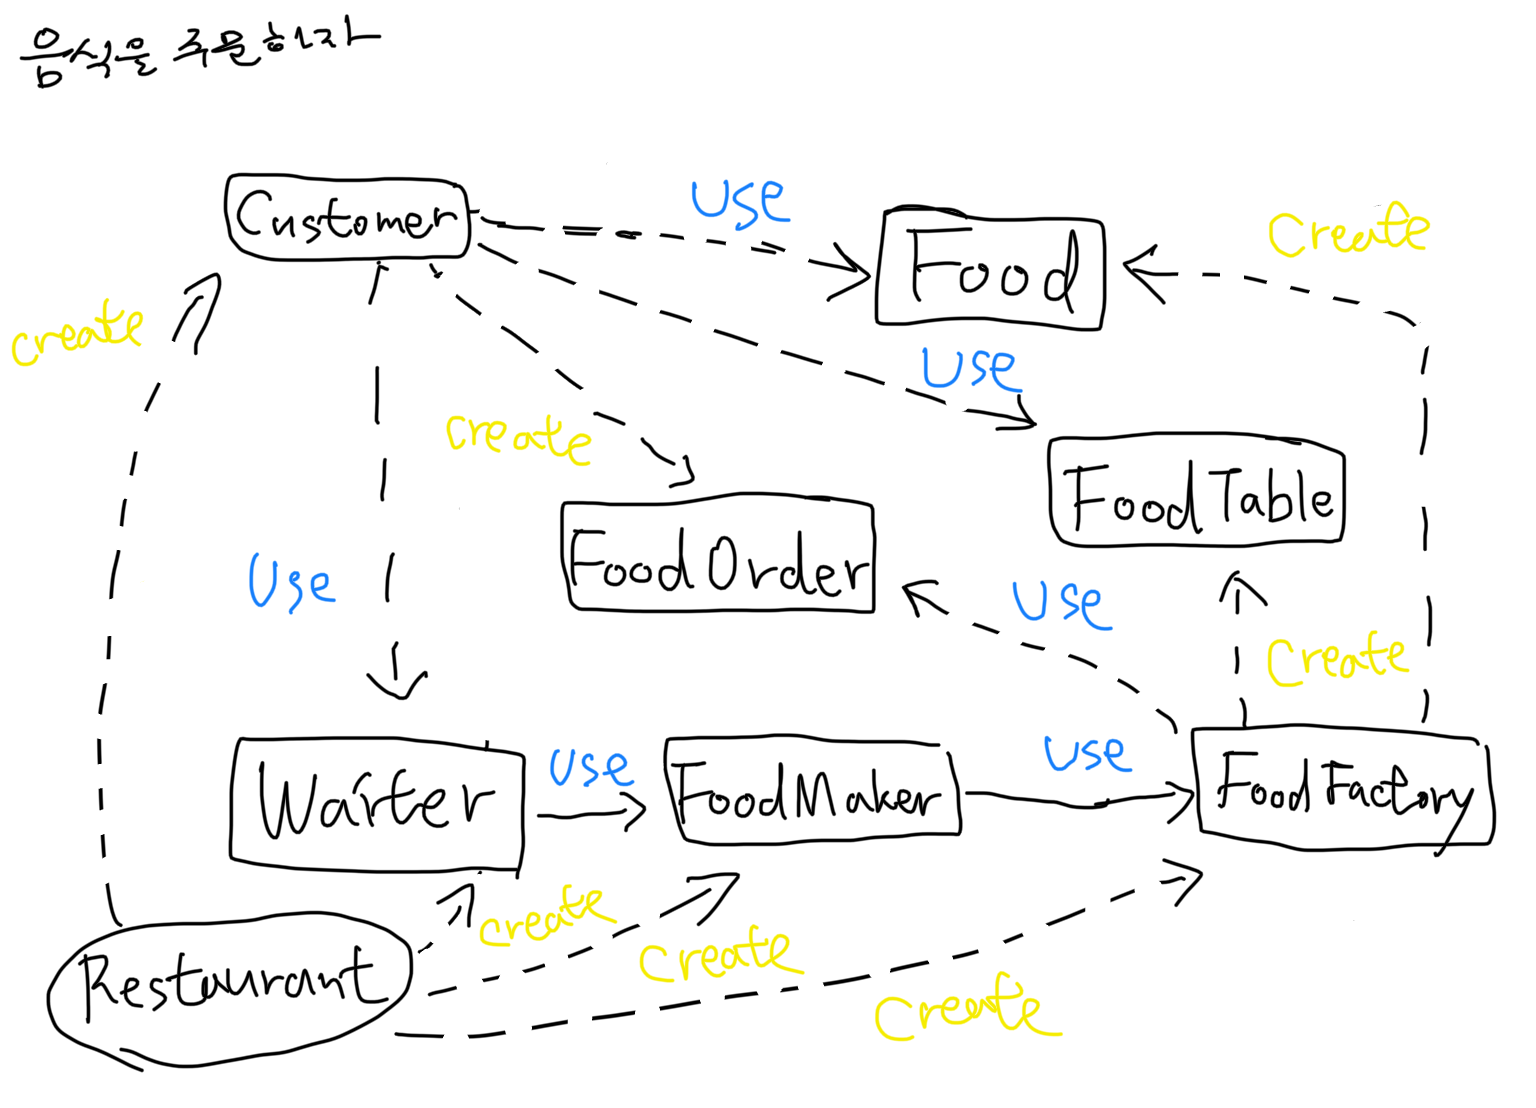 음식을 주문하자
Customer
use
Food
Create
create
use
create
FoodTable
FoodOrder
Use
use
Create
Waiter
use
FoodMaker
use
FoodFactory
create
Create
Create
Restaurant